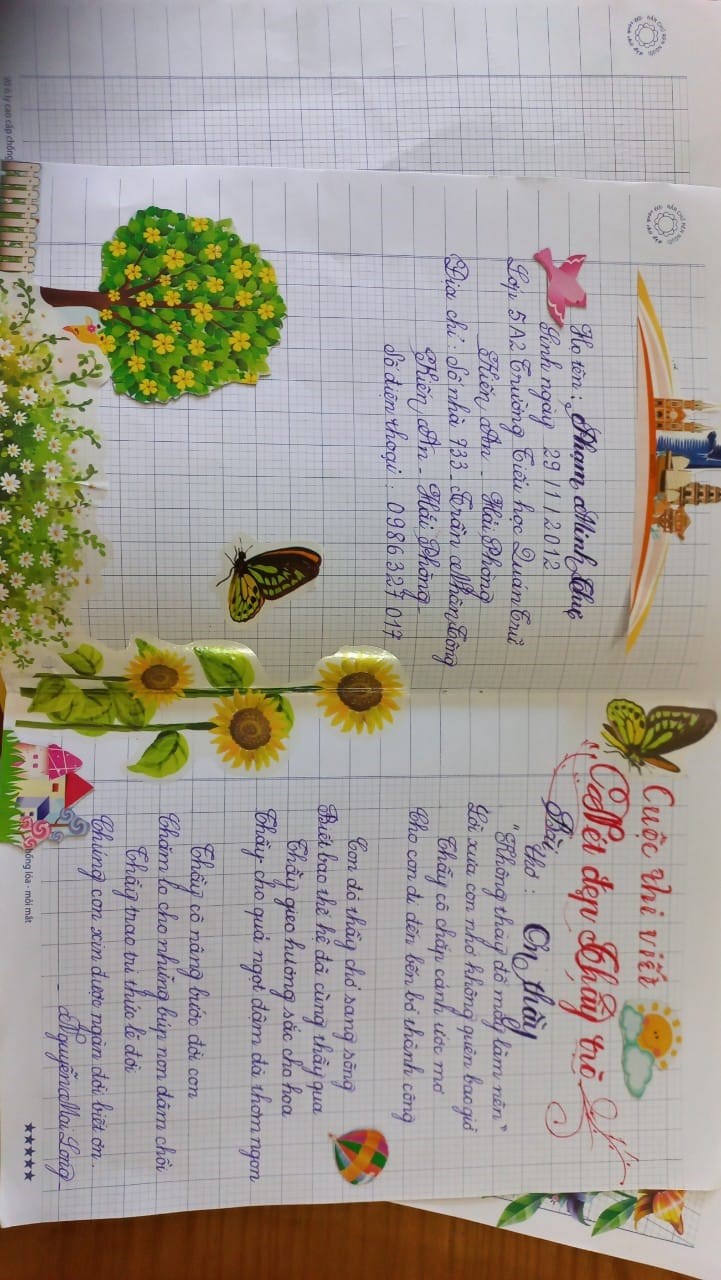 Họ tên: Phạm Minh Thư
Sinh ngày 29/11/2012
Lớp 5A2 Trường Tiểu học Quán Trữ
Kiến An - Hải Phòng
Địa chỉ: Số nhà 933 - Trần Nhân Tông
Kiến An - Hải Phòng
Số điện thoại: 0986 327 017
Cuộc thi viết
Nét đẹp Thầy trò
Bài thơ: Ơn thầy
"Không thầy đố mày làm nên"
Lời xưa con nhớ không quên bao giờ
Thầy cô chắp cánh ước mơ
Cho con đi đến bến bờ thành công
Con đò thầy chở sang sông
Biết bao thế hệ đã cùng thầy qua
Thầy gieo hương sắc cho hoa
Thầy cho quả ngọt đậm đà thơm ngon
Thầy cô nâng bước đời con
Chăm lo cho những búp non đâm chồi
Thầy trao tri thức lẽ đời
Chúng con xin được ngàn đời biết ơn.
- Nguyễn Mai Long -
★★★★★
ống lóa - mỏi mắt
ô ly cao cấp chống